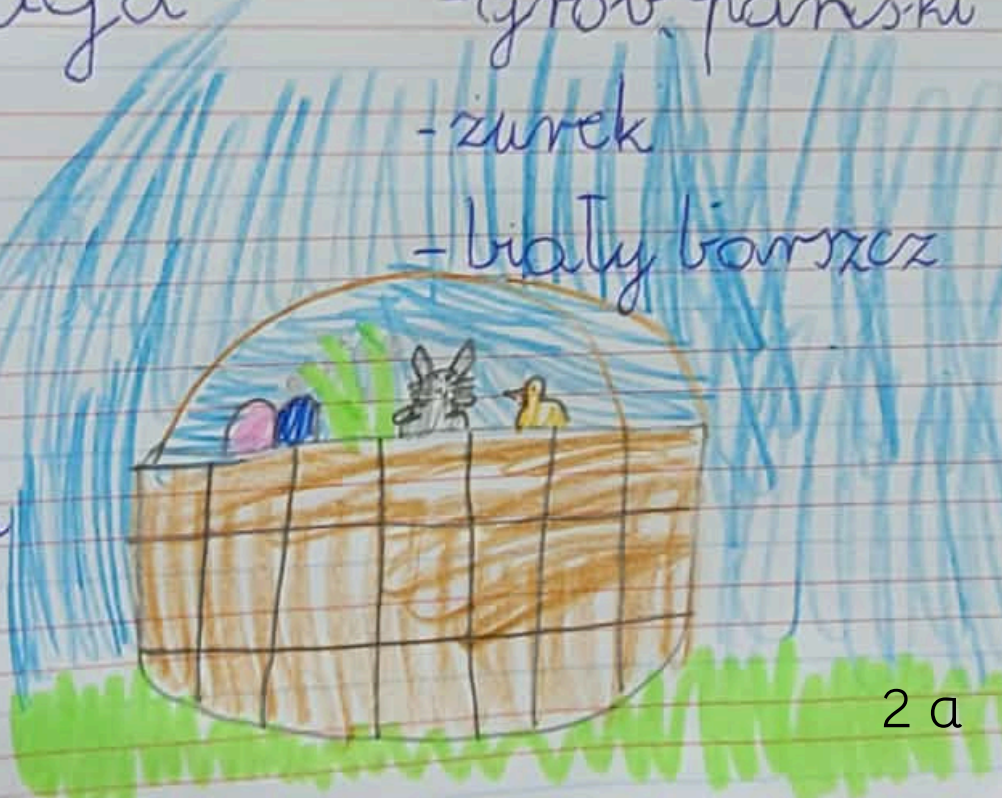 - grób pański
- żurek
- biały barszcz
2 a